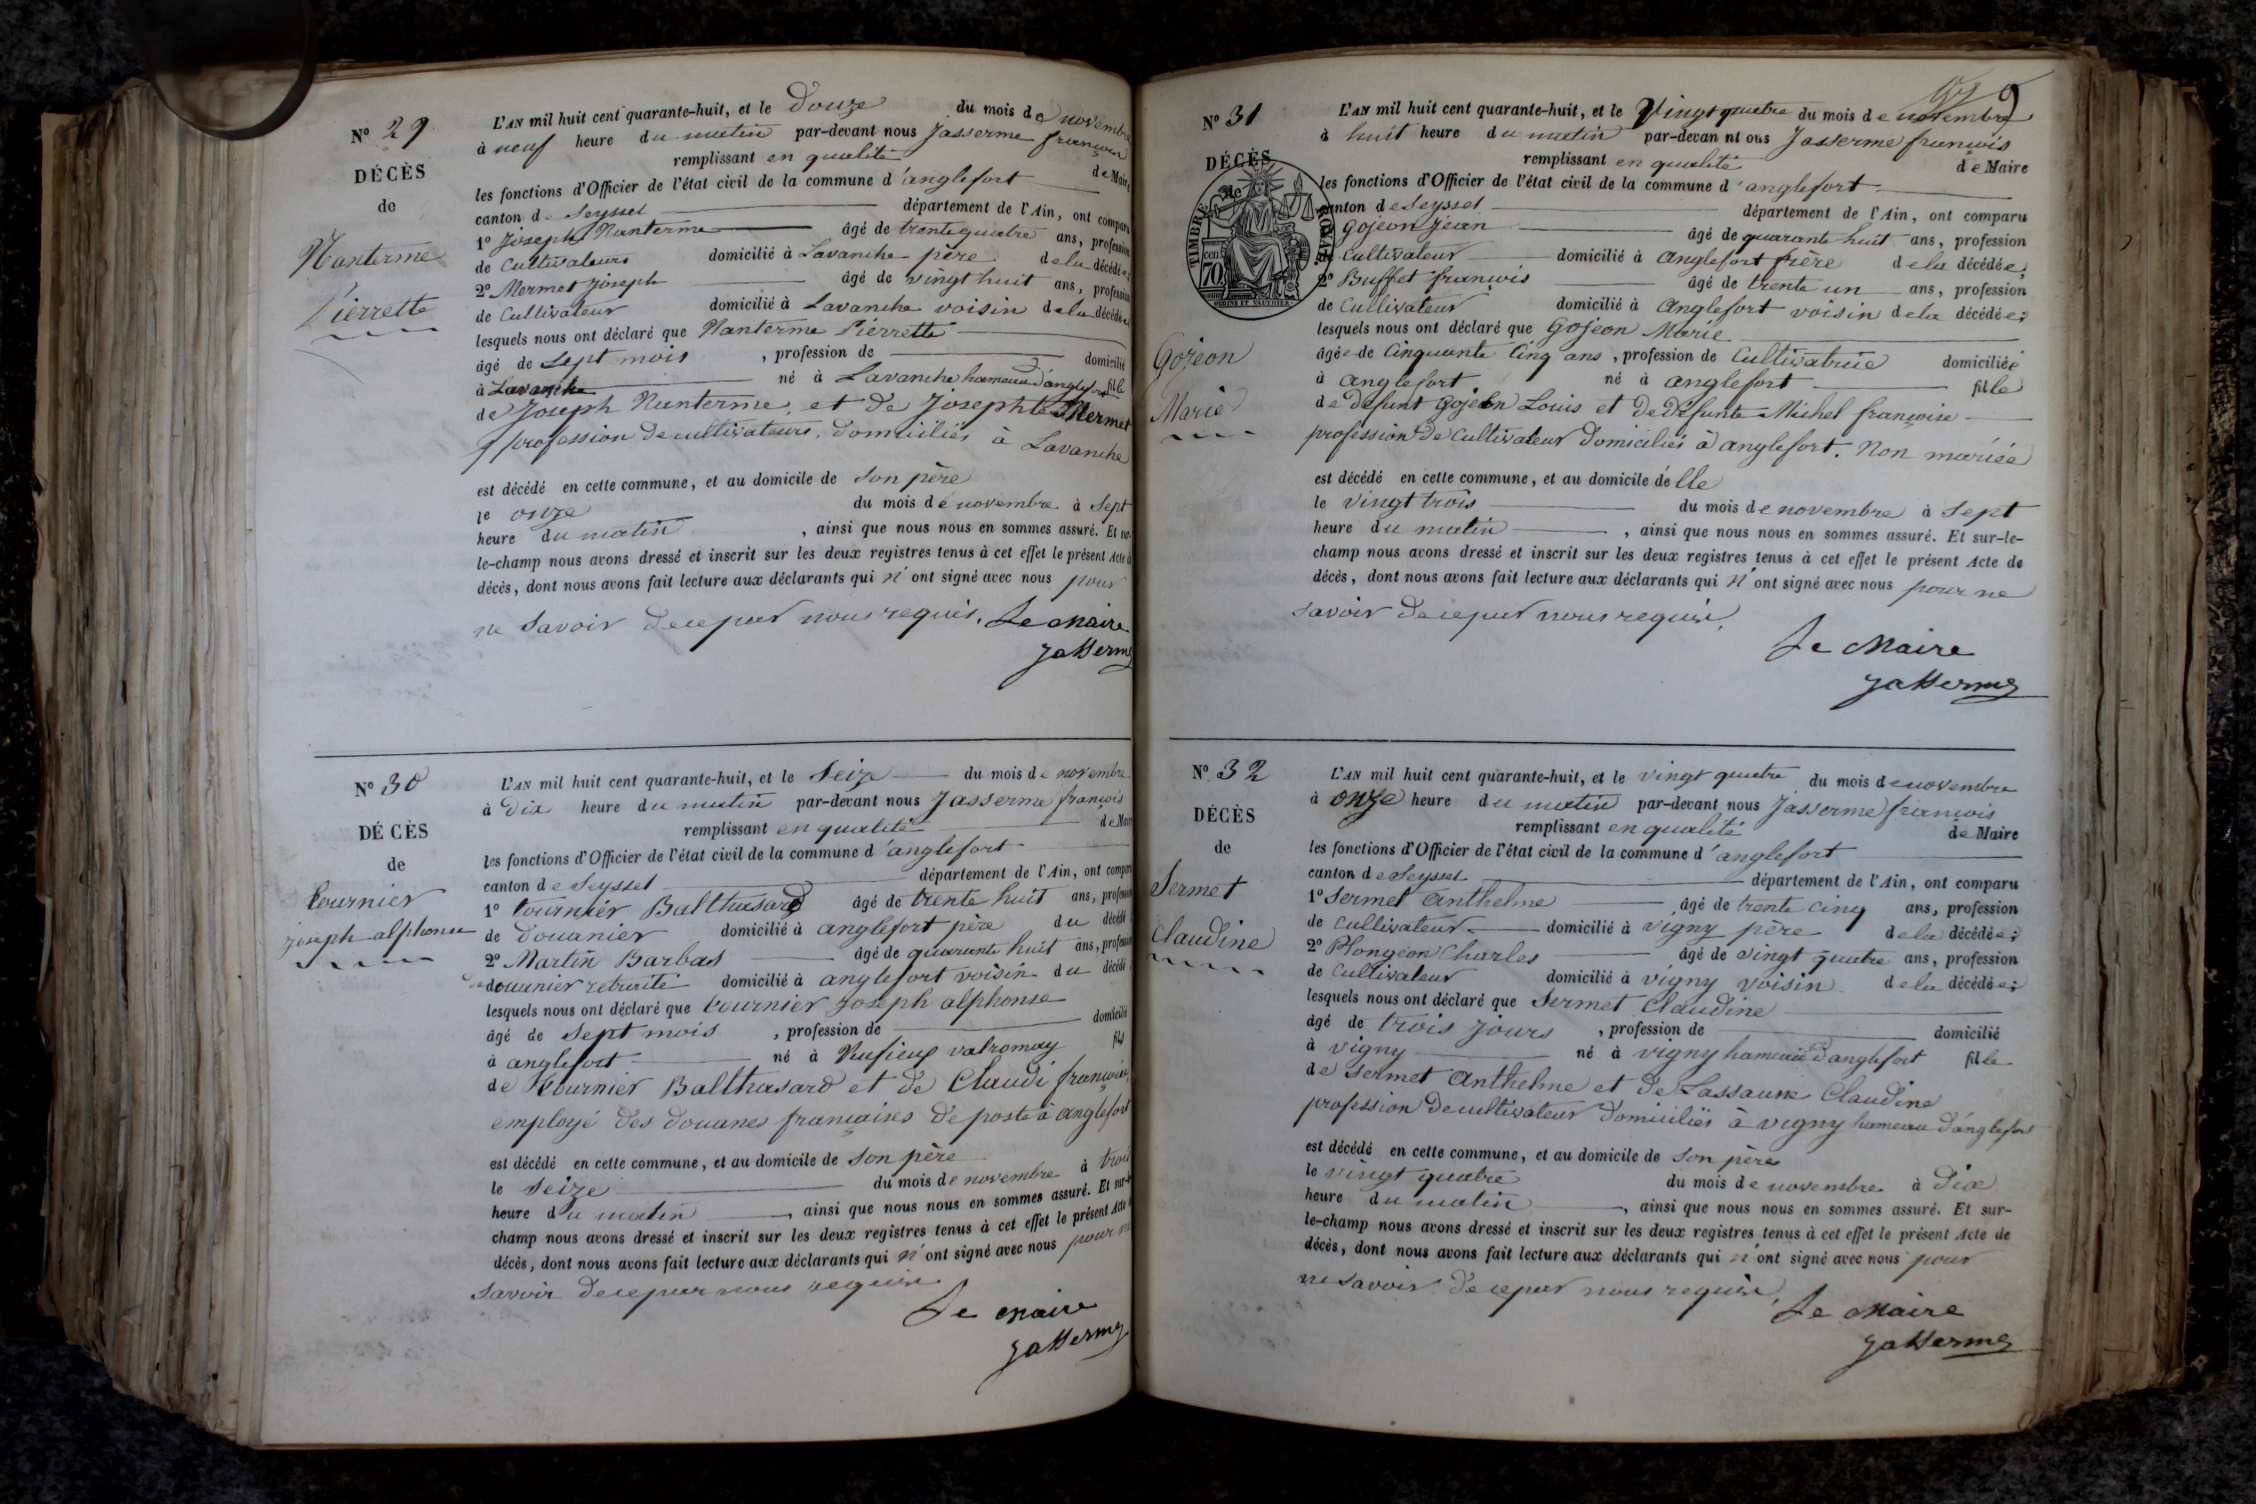 Nº 29
DÉCÈS
de
Nanterme
Pierrette
L'AN mil huit cent quarante-huit, et le douze du mois de novembre
à neuf heure du matin par-devant nous Jasserme françois
remplissant en qualité de Maire
les fonctions d'Officier de l'état civil de la commune d'anglefort
canton de Seyssel département de l'Ain, ont comparu
1º Joseph Nanterme âgé de trente quatre ans, profession
de Cultivateurs domicilié à Lavanche père de la décédée
2º Mermet Joseph âgé de vingt huit ans, profession
de Cultivateur domicilié à Lavanche voisin de la décédée
lesquels nous ont déclaré que Nanterme Pierrette
âgé de Sept mois , profession de domicilié
à Lavanche né à Lavanche hameau d'anglefort fille
de Joseph Nanterme, et de Josephte Mermet
profession de cultivateurs, domiciliés à Lavanche
est décédé en cette commune, et au domicile de son père
le onze du mois de novembre à Sept
heure du matin , ainsi que nous nous en sommes assuré. Et sur-
le-champ nous avons dressé et inscrit sur les deux registres tenus à cet effet le présent Acte de
décès, dont nous avons fait lecture aux déclarants qui n'ont signé avec nous pour
ne savoir de ce par nous requis. Le Maire
Jasserme
Nº 30
DÉCÈS
de
tournier
joseph alphonse
L'AN mil huit cent quarante-huit, et le Seize du mois de novembre
à dix heure du matin par-devant nous Jasserme françois
remplissant en qualité de Maire
les fonctions d'Officier de l'état civil de la commune d'anglefort
canton de Seyssel département de l'Ain, ont comparu
1º tournier Balthasard âgé de trente huit ans, profession
de douanier domicilié à anglefort père du décédé
2º Martin Barbas âgé de quarante huit ans, profession
de douanier retraité domicilié à anglefort voisin du décédé
lesquels nous ont déclaré que tournier Joseph alphonse
âgé de Sept mois , profession de domicilié
à anglefort né à Rufieux valromay fils
de tournier Balthasard et de Claudi françoise,
employé des douanes françaises de poste à anglefort
est décédé en cette commune, et au domicile de son père
le Seize du mois de novembre à trois
heure du matin , ainsi que nous nous en sommes assuré. Et sur-le-
champ nous avons dressé et inscrit sur les deux registres tenus à cet effet le présent Acte de
décès, dont nous avons fait lecture aux déclarants qui n'ont signé avec nous pour ne
savoir de ce par nous requise
Le Maire
Jasserme
Nº 31
DÉCÈS
de
TIMBRE ROYAL
70 cen
Gojeon
Marie
L'AN mil huit cent quarante-huit, et le Vingt quatre du mois de novembre
à huit heure du matin par-devan nt ous Jasserme françois
remplissant en qualité de Maire
les fonctions d'Officier de l'état civil de la commune d'anglefort
canton de Seyssel département de l'Ain, ont comparu
Gojeon Jean âgé de quarante huit ans, profession
Cultivateur domicilié à Anglefort frère de la décédée;
2º Buffet françois âgé de trente un ans, profession
de Cultivateur domicilié à Anglefort voisin de la décédée;
lesquels nous ont déclaré que Gojeon Marie
âgée de Cinquante Cinq ans , profession de Cultivatrice domiciliée
à Anglefort né à anglefort fille
de défunt Gojeon Louis et de défunte Michel françoise
profession de Cultivateur domiciliés à anglefort. Non mariée
est décédé en cette commune, et au domicile d'elle
le vingt trois du mois de novembre à Sept
heure du matin , ainsi que nous nous en sommes assuré. Et sur-le-
champ nous avons dressé et inscrit sur les deux registres tenus à cet effet le présent Acte de
décès, dont nous avons fait lecture aux déclarants qui n'ont signé avec nous pour ne
savoir de ce par nous requise.
Le Maire
Jasserme
Nº 32
DÉCÈS
de
Sermet
Claudine
L'AN mil huit cent quarante-huit, et le vingt quatre du mois de novembre
à onze heure du matin par-devant nous Jasserme françois
remplissant en qualité de Maire
les fonctions d'Officier de l'état civil de la commune d'anglefort
canton de Seyssel département de l'Ain, ont comparu
1º Sermet Anthelme âgé de trente cinq ans, profession
de cultivateur domicilié à vigny père de la décédée;
2º Plongeon Charles âgé de vingt quatre ans, profession
de Cultivateur domicilié à vigny voisin de la décédée;
lesquels nous ont déclaré que Sermet Claudine
âgé de trois Jours , profession de domicilié
à vigny né à vigny hameau d'anglefort fille
de Sermet Anthelme et de Lassaune Claudine
profession de cultivateur domiciliés à vigny hameau d'anglefort
est décédé en cette commune, et au domicile de son père
le vingt quatre du mois de novembre à dix
heure du matin , ainsi que nous nous en sommes assuré. Et sur-
le-champ nous avons dressé et inscrit sur les deux registres tenus à cet effet le présent Acte de
décès, dont nous avons fait lecture aux déclarants qui n'ont signé avec nous pour
ne savoir de ce par nous requise, Le Maire
Jasserme